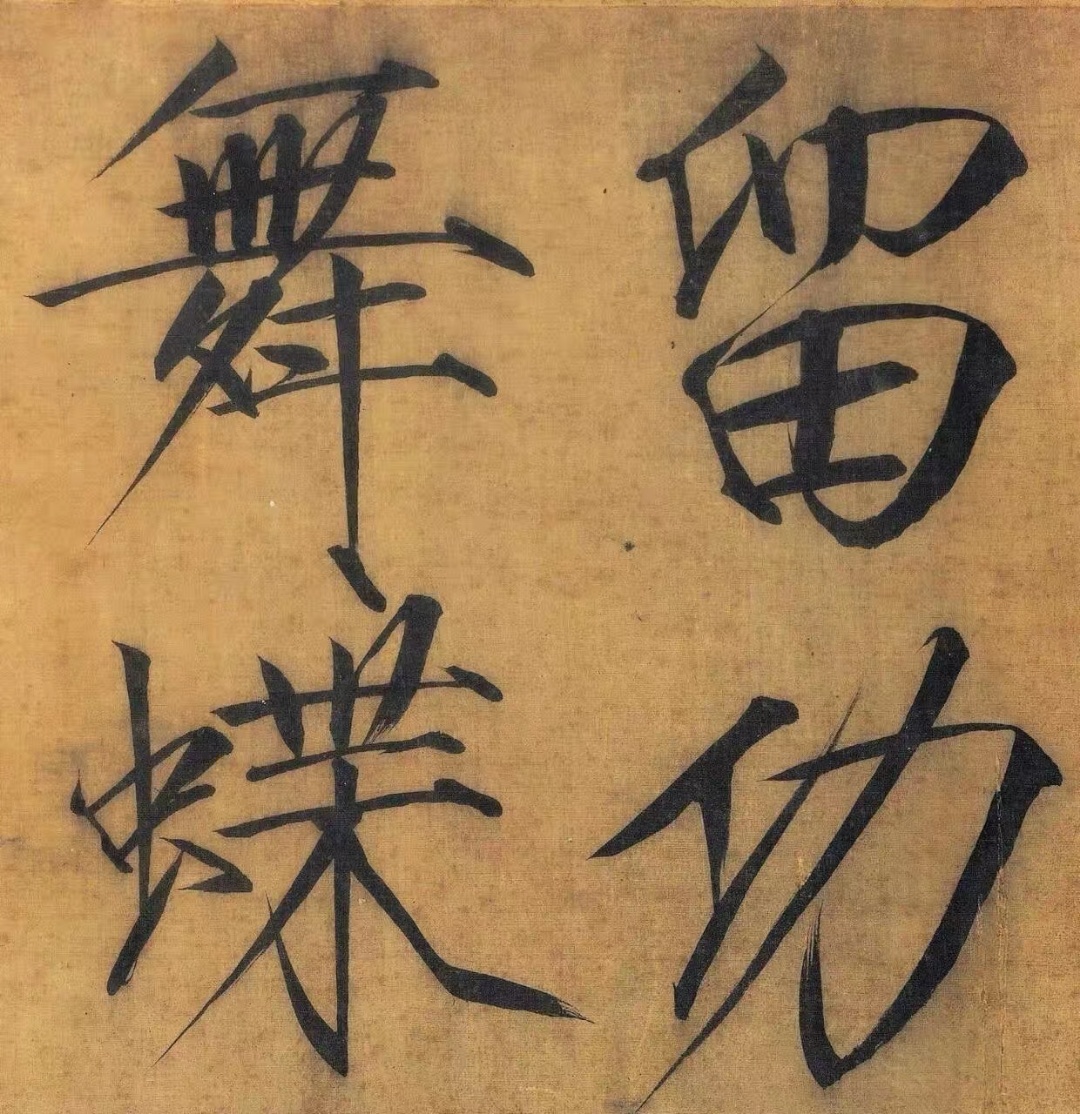 留功
舞蝶